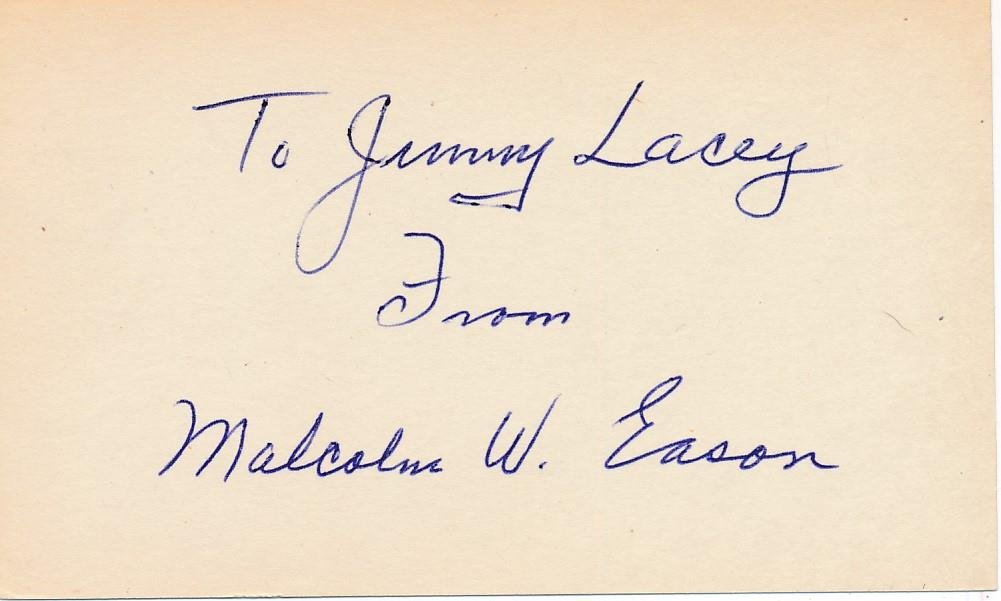 To Jimmy Lacey
From
Malcolm W. Eason